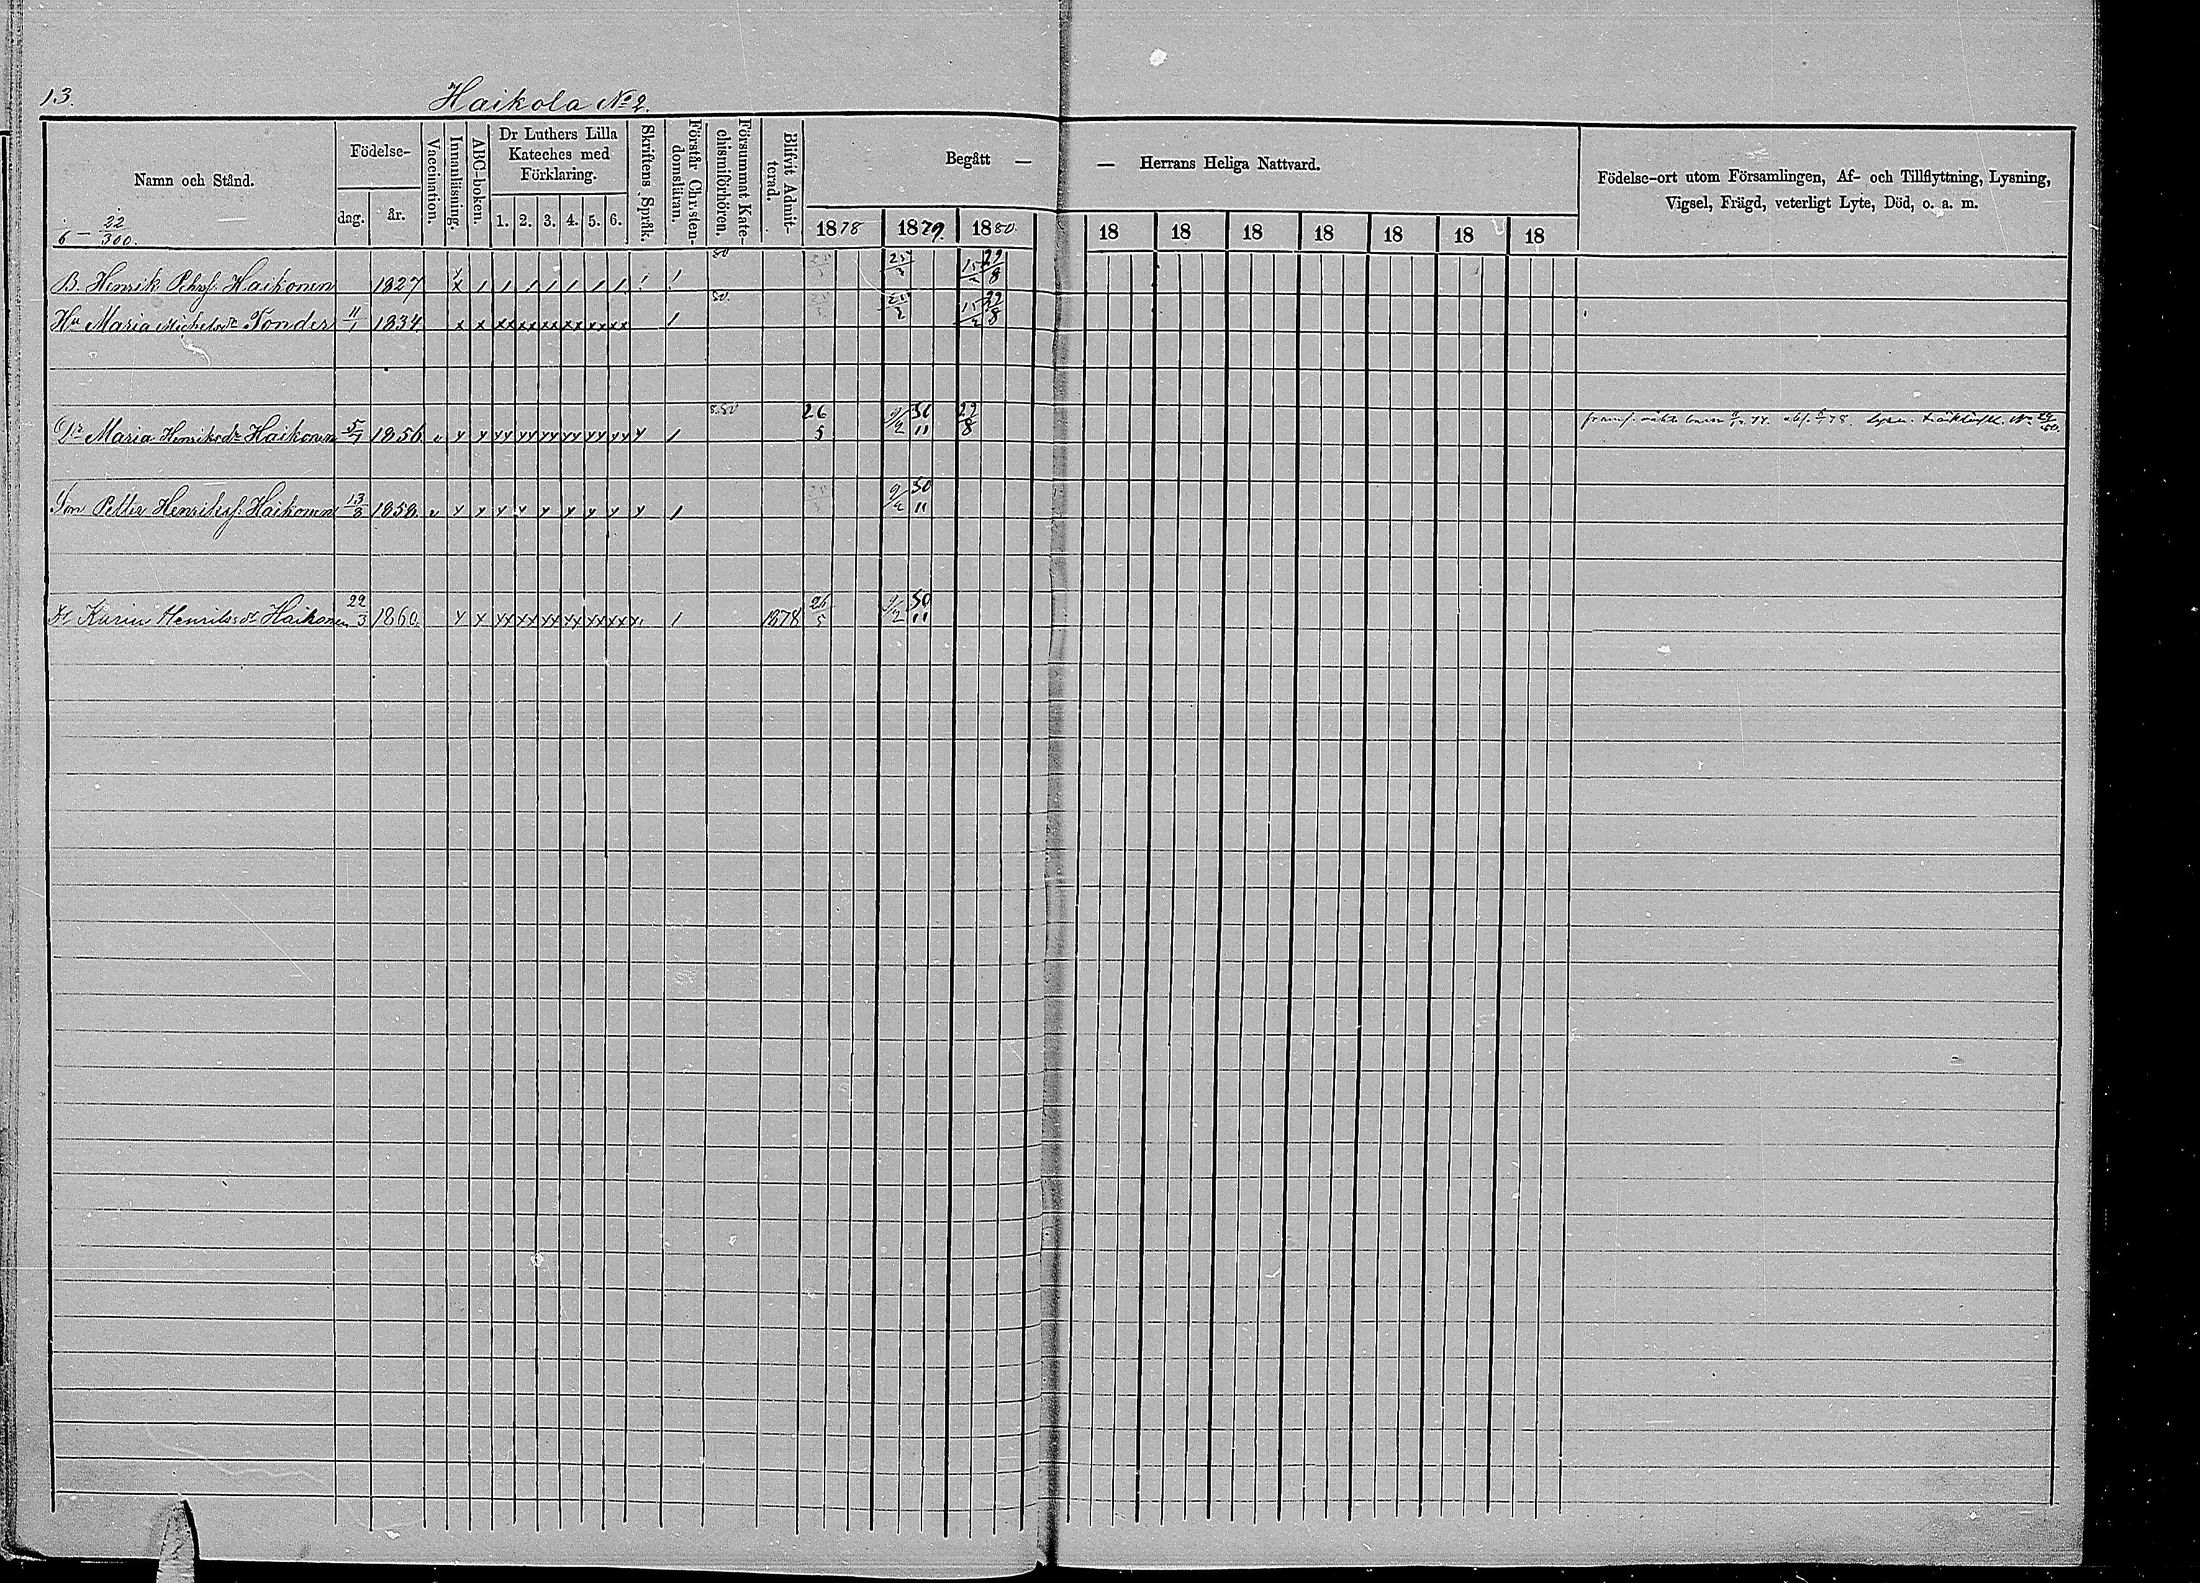 13.
Haikola No 2.
Namn och Stånd.
Födelse-
dag.
år.
Vaccination.
Innanläsning.
ABC-boken.
Dr Luthers Lilla
Kateches med
Förklaring.
1. 2. 3. 4. 5. 6.
Skriftens Språk.
Förstår Christen-
domsläran.
Försummat Kate-
chismiförhören.
Blifvit Admit-
terad.
Begått — — Herrans Heliga Nattvard.
1878 1879. 1880. 18 18 18 18 18 18 18
Födelse-ort utom Församlingen, Af- och Tillflyttning, Lysning,
Vigsel, Frägd, veterligt Lyte, Död, o. a. m.
6 — 22/300.
B. Henrik Pehrs. Haikonen 1827 80 15/2 22/8
Hu Maria Michelsdr Tonder 11/1 1834 x x xx xx xx xx xx xx 80. 15/2 22/8
Dr Maria Henriksdr Haikonen 5/7 1856 v x x xx xx xx xx xx xx x 26/5 9/2 30/11 22/8
Son Petter Henriks. Haikonen 13/3 1858. v x x x x x x x x x 9/2 30/11
Dr Karin Henriksdr Haikonen 22/3 1860. x x xx xx xx xx xx xx x 1878 26/5 9/2 30/11